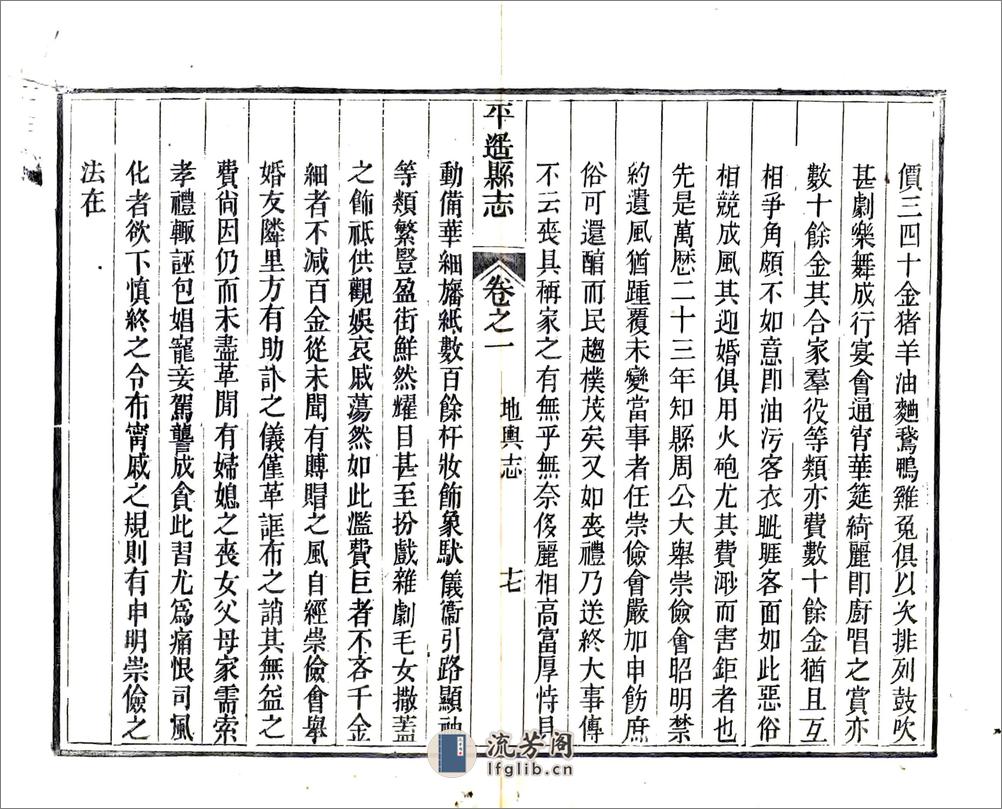 價三四十金猪羊油麯鵞鴨雞兔俱以次排列鼓吹
甚劇樂舞成行宴會通宵華筵綺麗即廚唱之賞亦
數十餘金其合家羣役等類亦費數十餘金猶且互
相爭角頗不如意即油污客衣眦睚客面如此惡俗
相競成風其迎婚俱用火砲尤其費渺而害鉅者也
先是萬歷二十三年知縣周公大舉崇儉會昭明禁
約遺風猶踵覆未變當事者任崇儉會嚴加申飭庶
俗可還醇而民趨樸茂矣又如丧禮乃送終大事傳
不云丧具稱家之有無乎無奈侈麗相高富厚恃具
平遙縣志
卷之一
地輿志
十七
動備華細旛紙數百餘杆妝飾象馱儀衞引路顯神
等類繁豎盈街鮮然耀目甚至扮戲雜劇毛女撒蓋
之飾祗供觀娛哀戚蕩然如此濫費巨者不吝千金
細者不減百金從未聞有賻賵之風自經崇儉會舉
婚友隣里方有助訃之儀僅革誆布之誚其無益之
費尙因仍而未盡革聞有婦媳之丧女父母家需索
孝禮輙誣包娼寵妾駕讐成貪此習尤爲痛恨司風
化者欲下慎終之令布甯戚之規則有申明崇儉之
法在
流芳阁
lfglib.cn